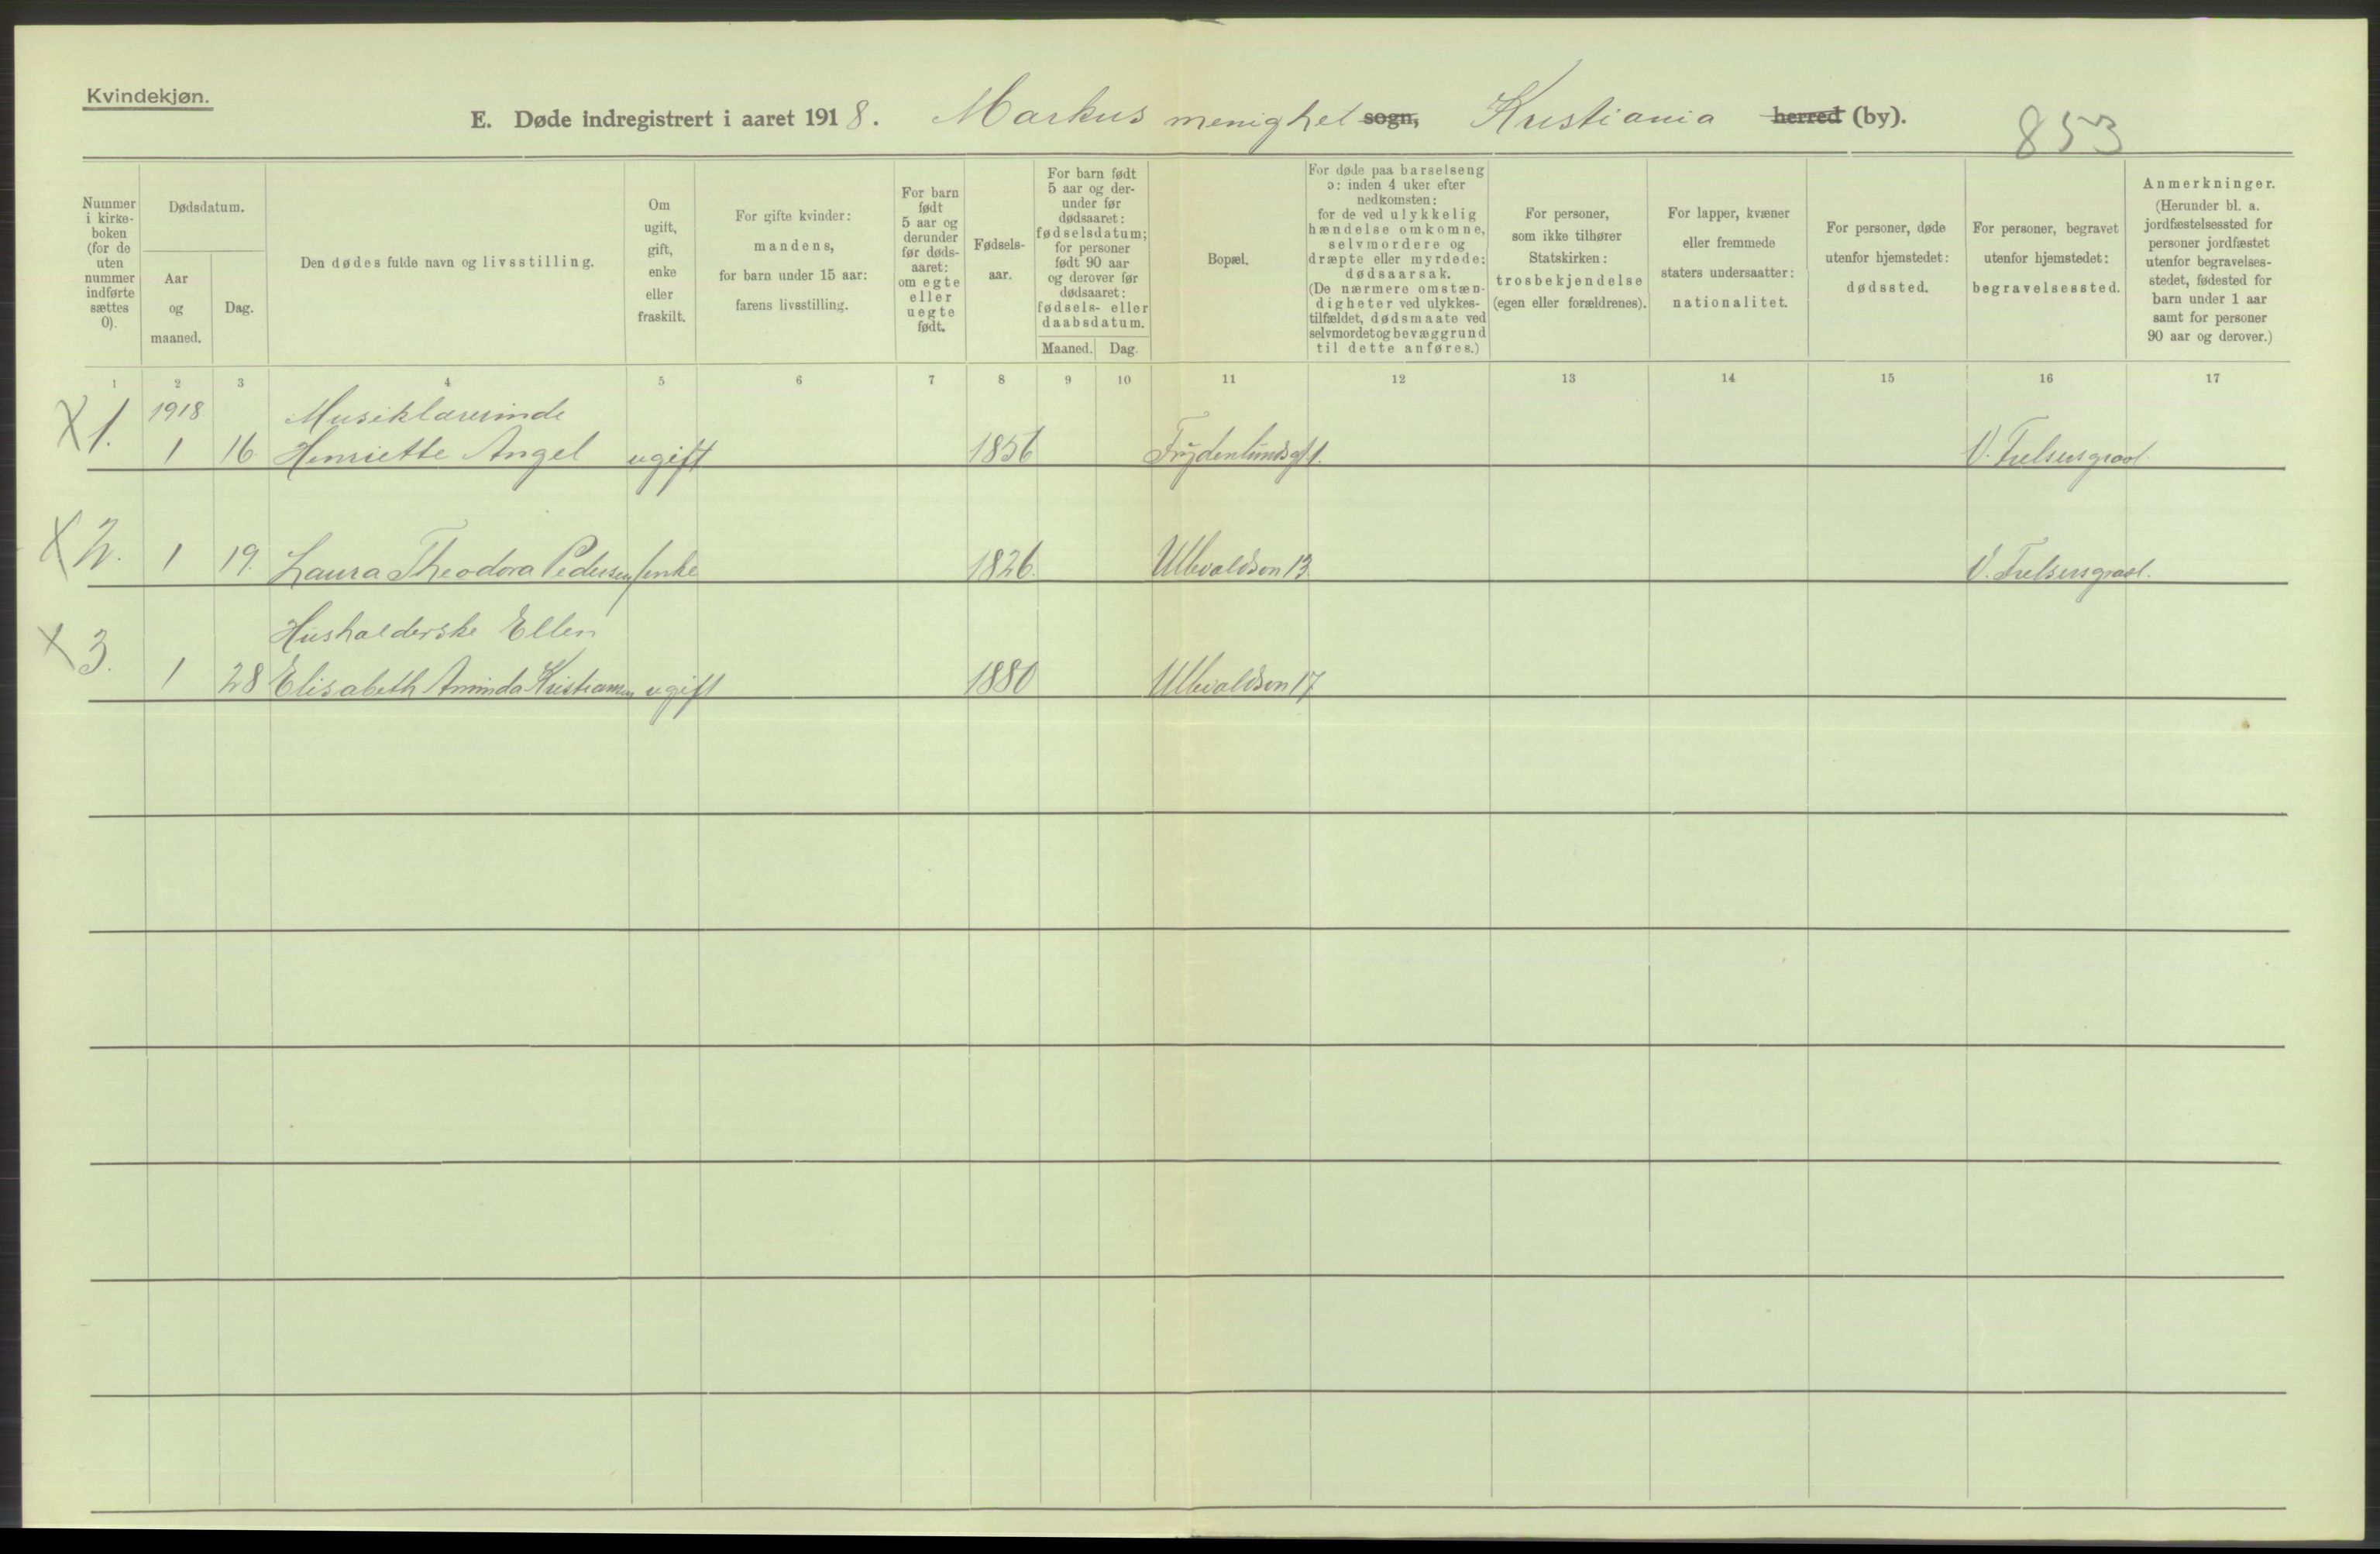 Kvindekjøn.
E. Døde indregistrert i aaret 1918. Markus menighet sogn, Kristiania herred (by). 853
Nummer i kirke- boken (for de uten nummer indførte sættes 0).
Dødsdatum.
Aar og maaned.
Dag.
Den dødes fulde navn og livsstilling.
Om ugift, gift, enke eller fraskilt.
For gifte kvinder: mandens, for barn under 15 aar: farens livsstilling.
For barn født 5 aar og derunder før døds- aaret: om egte eller uegte født.
Fødsels- aar.
For barn født 5 aar og der- under før dødsaaret: fødselsdatum; for personer født 90 aar og derover før dødsaaret: fødsels- eller daabsdatum.
Maaned. Dag.
Bopæl.
For døde paa barselseng ɔ: inden 4 uker efter nedkomsten: for de ved ulykkelig hændelse omkomne, selvmordere og dræpte eller myrdede: dødsaarsak. (De nærmere omstæn- digheter ved ulykkes- tilfældet, dødsmaate ved selvmordet og bevæggrund til dette anføres.)
For personer, som ikke tilhører Statskirken: trosbekjendelse (egen eller forældrenes).
For lapper, kvæner eller fremmede staters undersaatter: nationalitet.
For personer, døde utenfor hjemstedet: dødssted.
For personer, begravet utenfor hjemstedet: begravelsessted.
Anmerkninger. (Herunder bl. a. jordfæstelsessted for personer jordfæstet utenfor begravelses- stedet, fødested for barn under 1 aar samt for personer 90 aar og derover.)
1 2 3 4 5 6 7 8 9 10 11 12 13 14 15 16 17
1918 Musiklærerinde
X 1. 1 16. Henriette Angel ugift 1856 Frydenlundsgt 1. V. Frelsersgravl.
X 2. 1 19. Laura Theodora Pedersen enke 1826. Ullevaldsvn 13. V. Frelsersgravl.
Husholderske Ellen
X 3. 1 28 Elisabeth Aminda Kristiansen ugift 1880 Ullevaldsvn 17